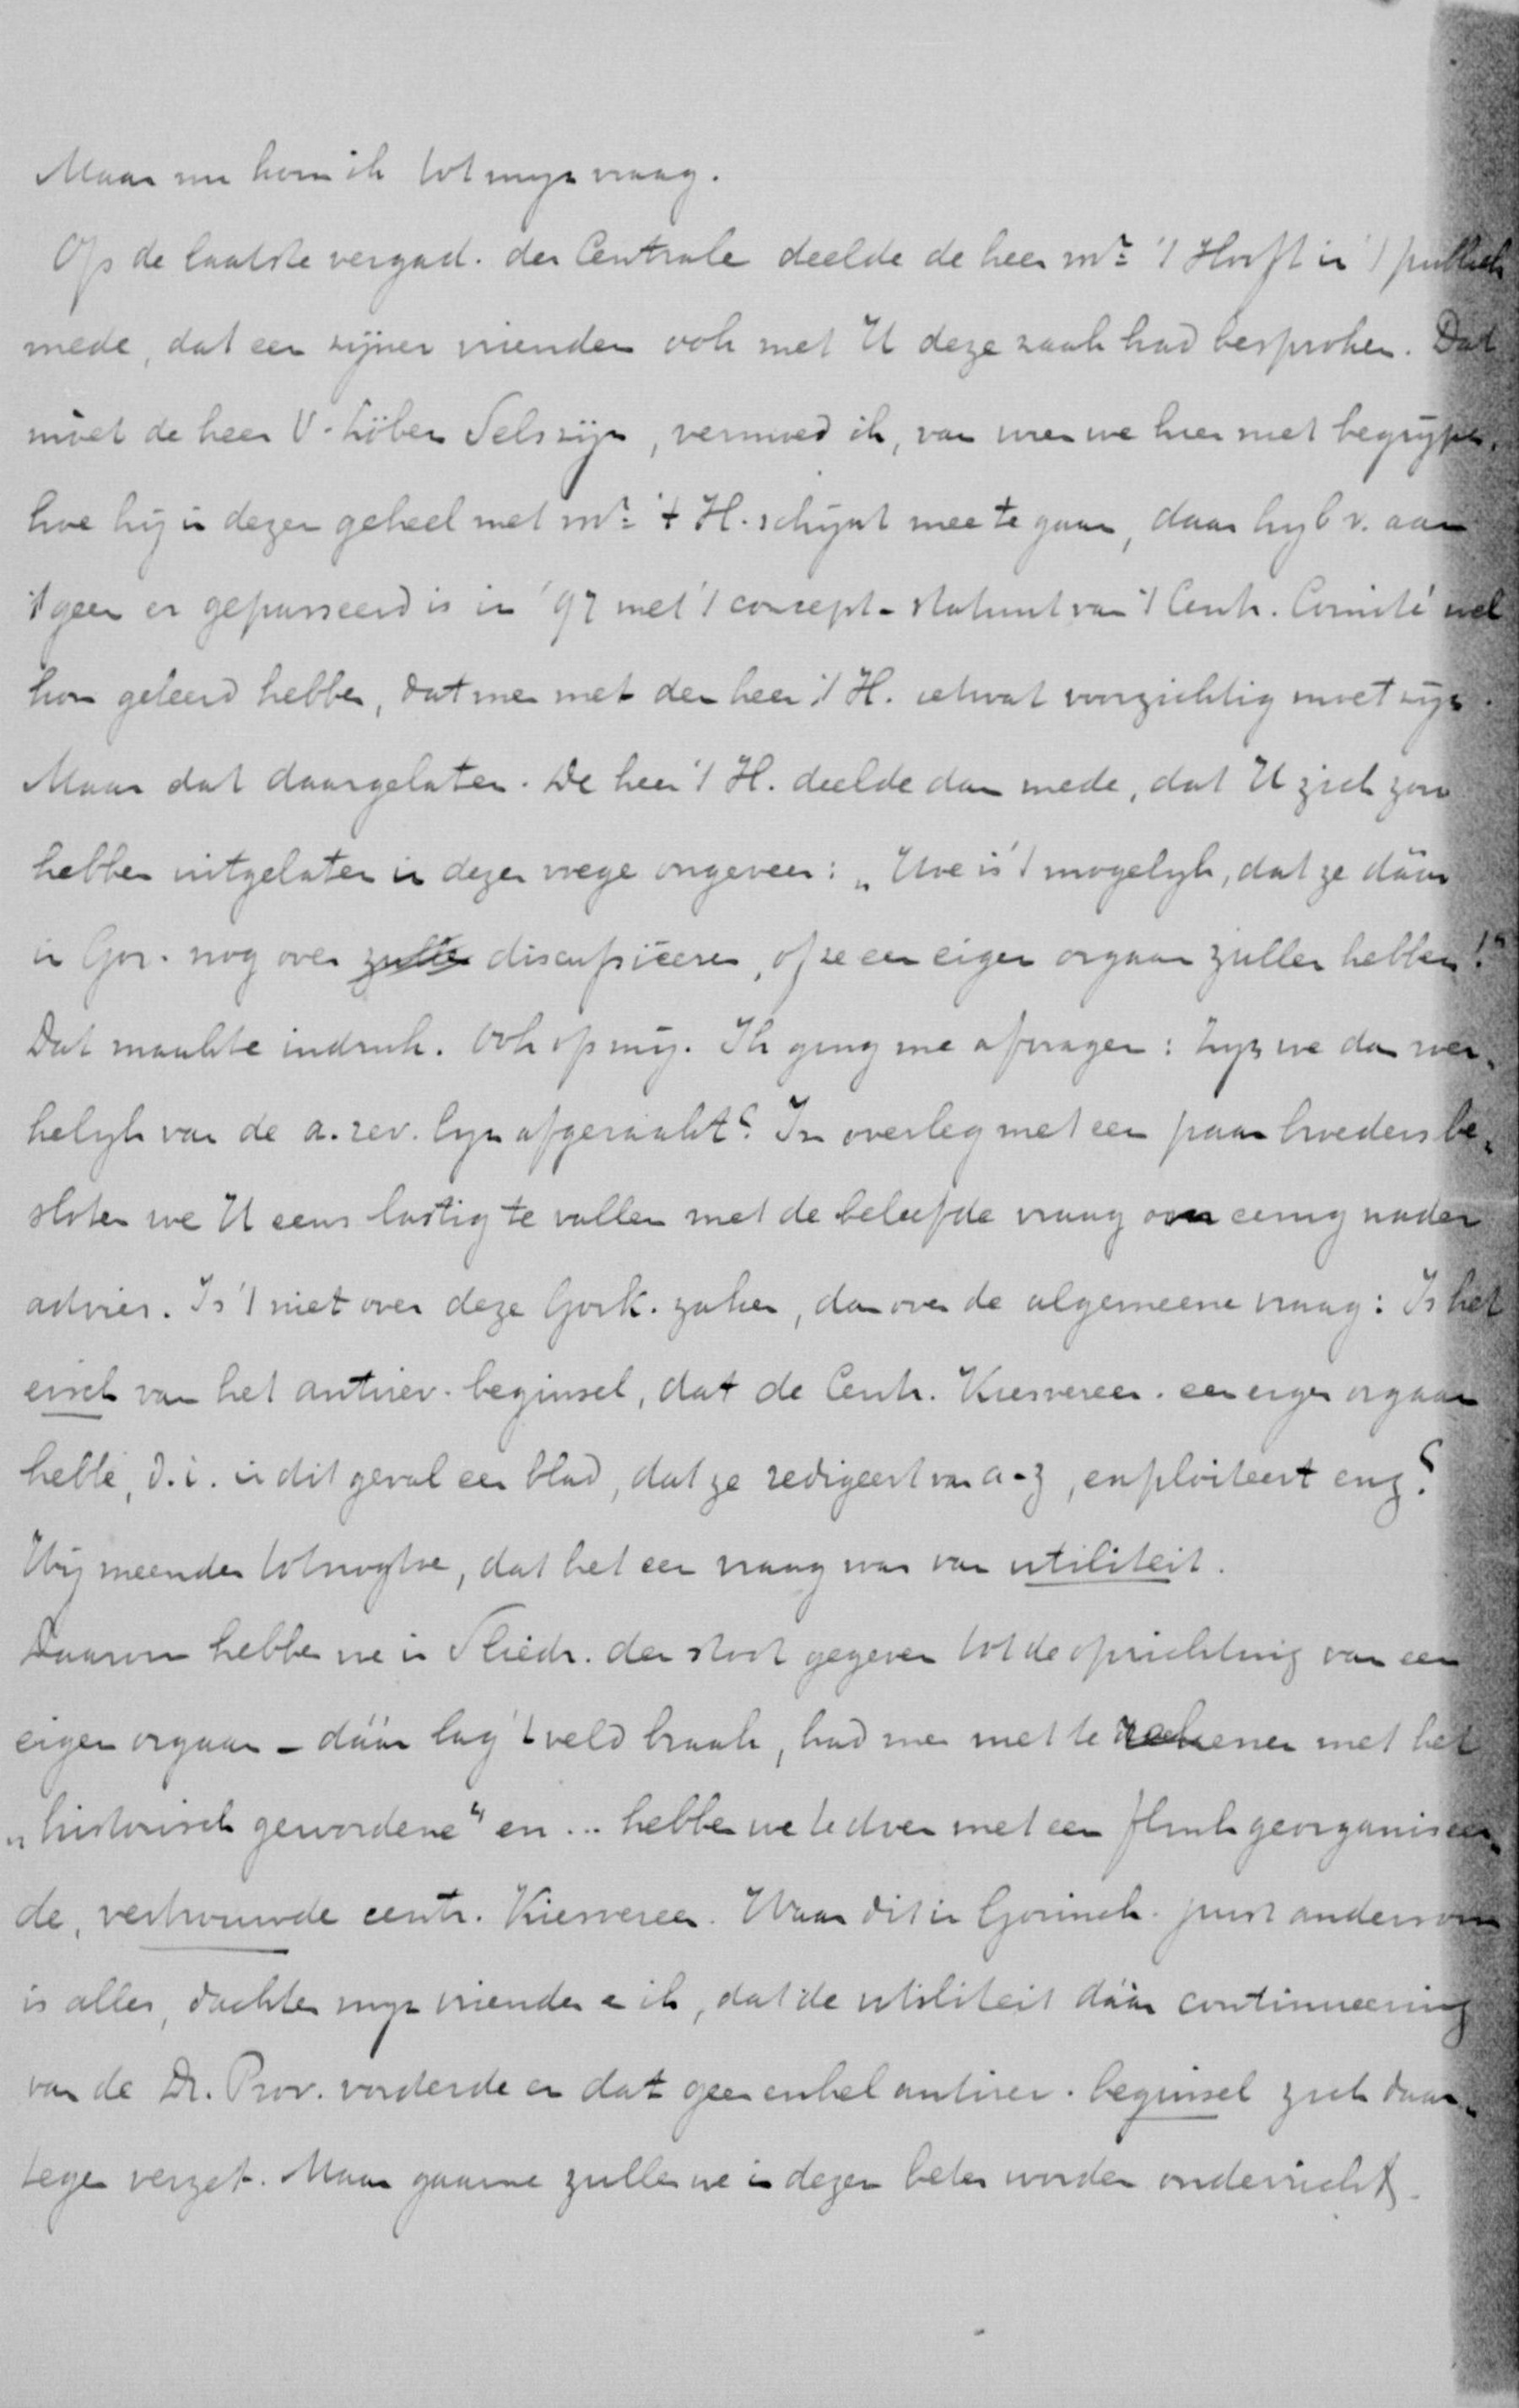 Maar nu kom ik tot myn vraag.
Op de laatste vergad. der Centrale deelde de heer mr. 't Hooft in 't publiek
mede, dat een zijner vrienden ook met U deze zaak had besproken. Dat
moet de heer V. Löben Sels zijn, vermoed ik, van wien we hier niet begrijpen,
hoe hij in dezen geheel met mr. 't H. schynt mee te gaan, daar hy b.v. aan
't geen er gepasseerd is in '97 met 't concept-statuut van 't Centr. Comité wel
kon geleerd hebben, dat men met den heer 't H. ietwat voorzichtig moet zyn.
Maar dat daargelaten. De heer 't H. deelde dan mede, dat U zich zou
hebben uitgelaten in dezer voege ongeveer: „Hoe is 't mogelyk, dat ze dáár
in Gor. nog over zullen discussiëeren, of ze een eigen orgaan zullen hebben!"
Dat maakte indruk. Ook op mij. Ik ging me afvragen: zyn we dan wer„
kelyk van de a. rev. lyn afgeraakt? In overleg met een paar broeders be„
sloten we U eens lastig te vallen met de beleefde vraag om eenig nader
advies. Is 't niet over deze Gork. zaken, dan over de algemeene vraag: Is het
eisch van het antirev. beginsel, dat de Centr. Kiesvereen. een eigen orgaan
hebbe, d.i. in dit geval een blad, dat ze redigeert van a-z, exploiteert enz?
Wij meenden totnogtoe, dat het een vraag was van utiliteit.
Daarom hebben we in Sliedr. den stoot gegeven tot de oprichting van een
eigen orgaan - dáár lag 't veld braak, had men niet te rekenen met het
„historisch gewordene" en ... hebben we te doen met een flink georganiseer„
de, vertrouwde centr. Kiesvereen. Waar dit in Gorinch. juist andersom
is alles, dachten myn vrienden en ik, dat de utiliteit dáár continueering
van de Dr. Prov. vorderde en dat geen enkel antirev. beginsel zich daar„
tegen verzet. Maar gaarne zullen we in dezen beter worden onderricht.